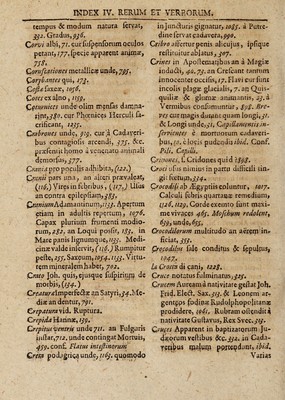 INDEX IV. RERUM ET VERBORUM.
tempus & modum natura servat,
332. Gradus, 936.
Corvi albi, 71. cur suspensorum oculos
petant, 177. specie apparent anima,
758.
Coruscationes metallicæ unde, 795.
Corybantes qui, 173.
Costa saxea, 1056.
Cotes ex alno, 1159.
Coturnices unde olim mensis damna-
rint, 380. cur Phœnices Herculi sa-
crificent, 1235.
Crabrones unde, 919. cur à Cadaveri-
bus contagiosis arcendi, 175. &c.
præsentis homo à venenato animali
demorsus, 577.
Crania pro poculis adhibita, (122.)
Cranii pars una, an alteri prævaleat,
(116.) Vites in febribus, (117.) Usus
an contra epilepsiam, 285.
Cranium Adamantinum, 1135. Apertum
etiam in adultis repertum, 1076.
Capax plurium frumenti modio-
rum, 282. an Loqui possit, 182. in
Mare panis lignumque, 1135. Medici-
næ valde inservit, (116.) Rumpitur
peste, 255. Saxeum, 1054. 1135. Virtu-
tem mineralem habet, 702.
Crato Joh. quis, ejusque suspirium de
morbis, (134.)
Creatura imperfectæ an Satyri, 34. Me-
diæ an dentur, 791.
Crepatura vid. Ruptura.
Crepida Hannæ, 139.
Crepitus ventris unde 711. an Fulgaris
instar, 712. unde contingat Mortuis,
459. conf. Flatus intestinorum
Creta podagrica unde, 1163. quomodo
in Juncturis gignatur, 1085. à Putre-
dine servat cadavera, 990.
Cribro assertur penis alicujus, ipsique
restituitur ablatus, 307.
Crines in Apostematibus an à Magiæ
inductu, 40. 73. an Crescant tantum
innocenter occisis, 17. Flavi cur sint
incolis plagæ glacialis, 7. an Quis-
quiliæ & gluma amantatis, 23. à
Vermibus consumuntur, 258. Bre-
ves cur magis durant quam longi, 31.
& Longi unde, 31. Capillamentis in-
servientes è mortuorum cadaveri-
bus, 32. è locis pudendis ibid. Conf.
Capilli. Pili.
Critones, f. Critones quid 1398.
Croci usus nimius in partu difficili sin-
gil fœtum, 234.
Crocodili ab Ægyptiis coluntur, 1017.
Calculi febris quartanæ remedium,
326. 1265. Corde exemto sunt maxi-
me vivaces 465. Moschum redolent,
639. unde, 695.
Crocodilorum multitudo an aërem in-
ficiat, 319.
Crocodilus sale conditus & sepultus,
1047.
La Croix di cani, 1228.
Crux notatus fulminatus, 325.
Crucem Auream à nativitate gestat Joh.
Frid. Elect. Sax. 315. & Leonem ar-
genteos fodinæ Rudolphopolitanæ
prodidere, 1061. Rubram ostendit à
nativitate Gustavus, Rex Svec. 315.
Cruces Apparent in baptizatorum Ju-
dæorum vestibus &c. 392. in Cada-
veribus malum portendunt, ibid.
Varias